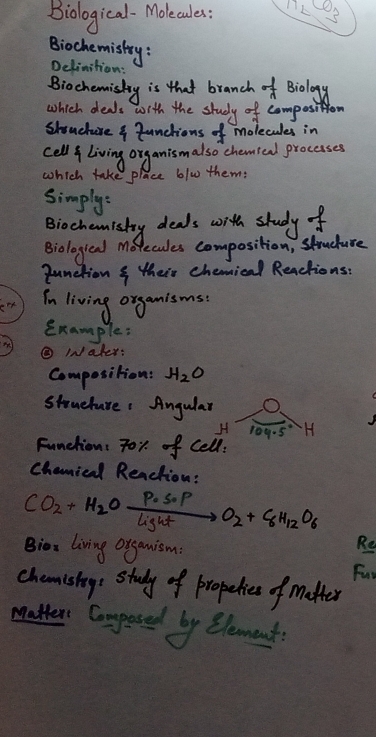 Biological - Molecules:
H2CO3
Biochemistry:
Definition:
Biochemistry is that branch of Biology
which deals with the study of Composition
Structure & Functions of Molecules in
Cell & Living organism also chemical processes
which take place b/w them:
Simply:
Biochemistry deals with study of
Biological Molecules Composition, Structure
Function & their Chemical Reactions:
In living organisms:
Example:
Water:
Composition: H2O
Structure: Angular
O
H 104.5° H
Function: 70% of Cell:
Chemical Reaction:
CO2 + H2O P.S.P Light → O2 + C6H12O6
Bio: Living Organism:
Chemistry: Study of propeties of Matter
Matter: Composed by Element:
Re
Fun